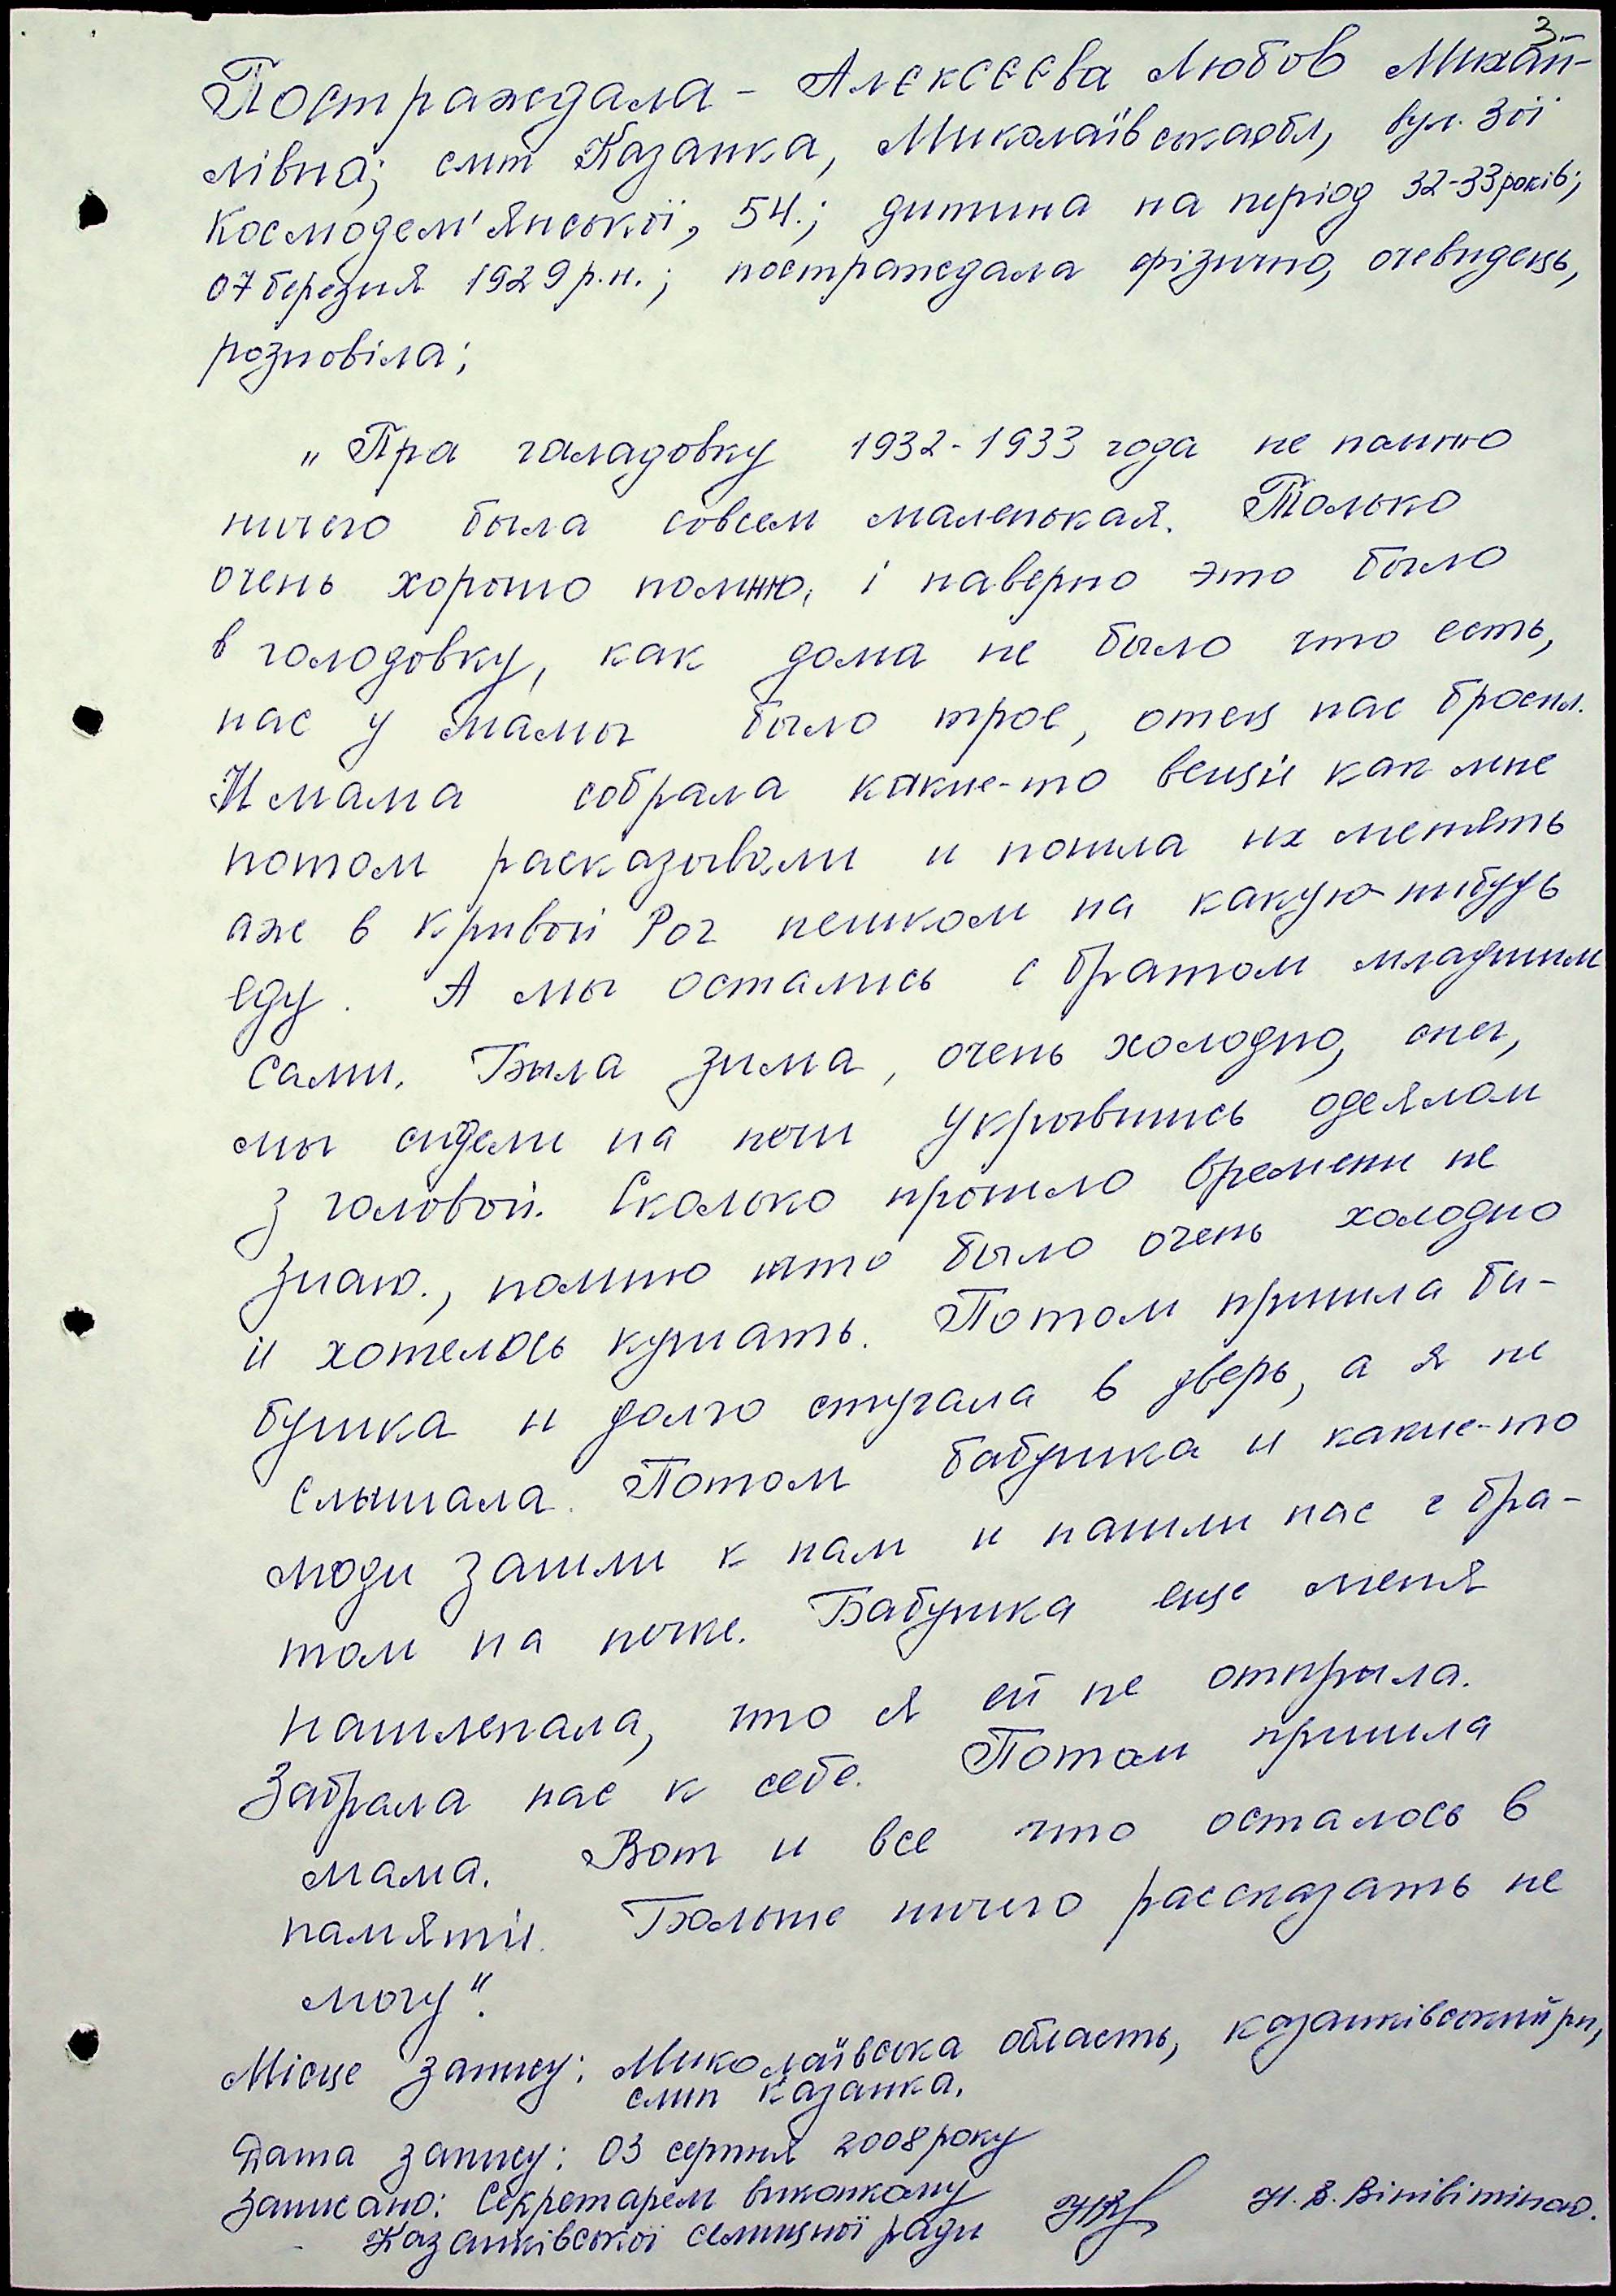 3
Постраждала - Алєксєєва Любов Михай-
лівна; смт Казанка, Миколаївська обл, вул. Зої
Космодем'янської, 54.; дитина на період 32-33 років;
07 березня 1929 р.н.; постраждала фізично, очевидець,
розповіла;
„Пра галадовку 1932-1933 года не помню
ничего была совсем маленькая. Только
очень хорошо помню, і наверно это было
в голодовку, как дома не было что есть,
нас у мамы было трое, отец нас бросил.
И мама собрала какие-то вещи как мне
потом расказывали и пошла их менять
аже в Кривой Рог пешком на какую-нибудь
еду. А мы остались с братом младшим
сами. Была зима, очень холодно, снег,
мы сидели на печи укрывшись одеялом
з головой. Сколько прошло времени не
знаю., помню што было очень холодно
и хотелось кушать. Потом пришла ба-
бушка и долго стучала в дверь, а я не
слышала. Потом бабушка и какие-то
люди зашли к нам и нашли нас с бра-
том на печке. Бабушка еще меня
нашлепала, что я ей не открыла.
Забрала нас к себе. Потом пришла
мама. Вот и все что осталось в
памяти. Больше ничего рассказать не
могу".
Місце запису: Миколаївська область, Казанківський рн,
смт Казанка.
Дата запису: 03 серпня 2008 року
Записано: Секретарем виконкому
Казанківської селищної ради Н.В. Вінівітіною.